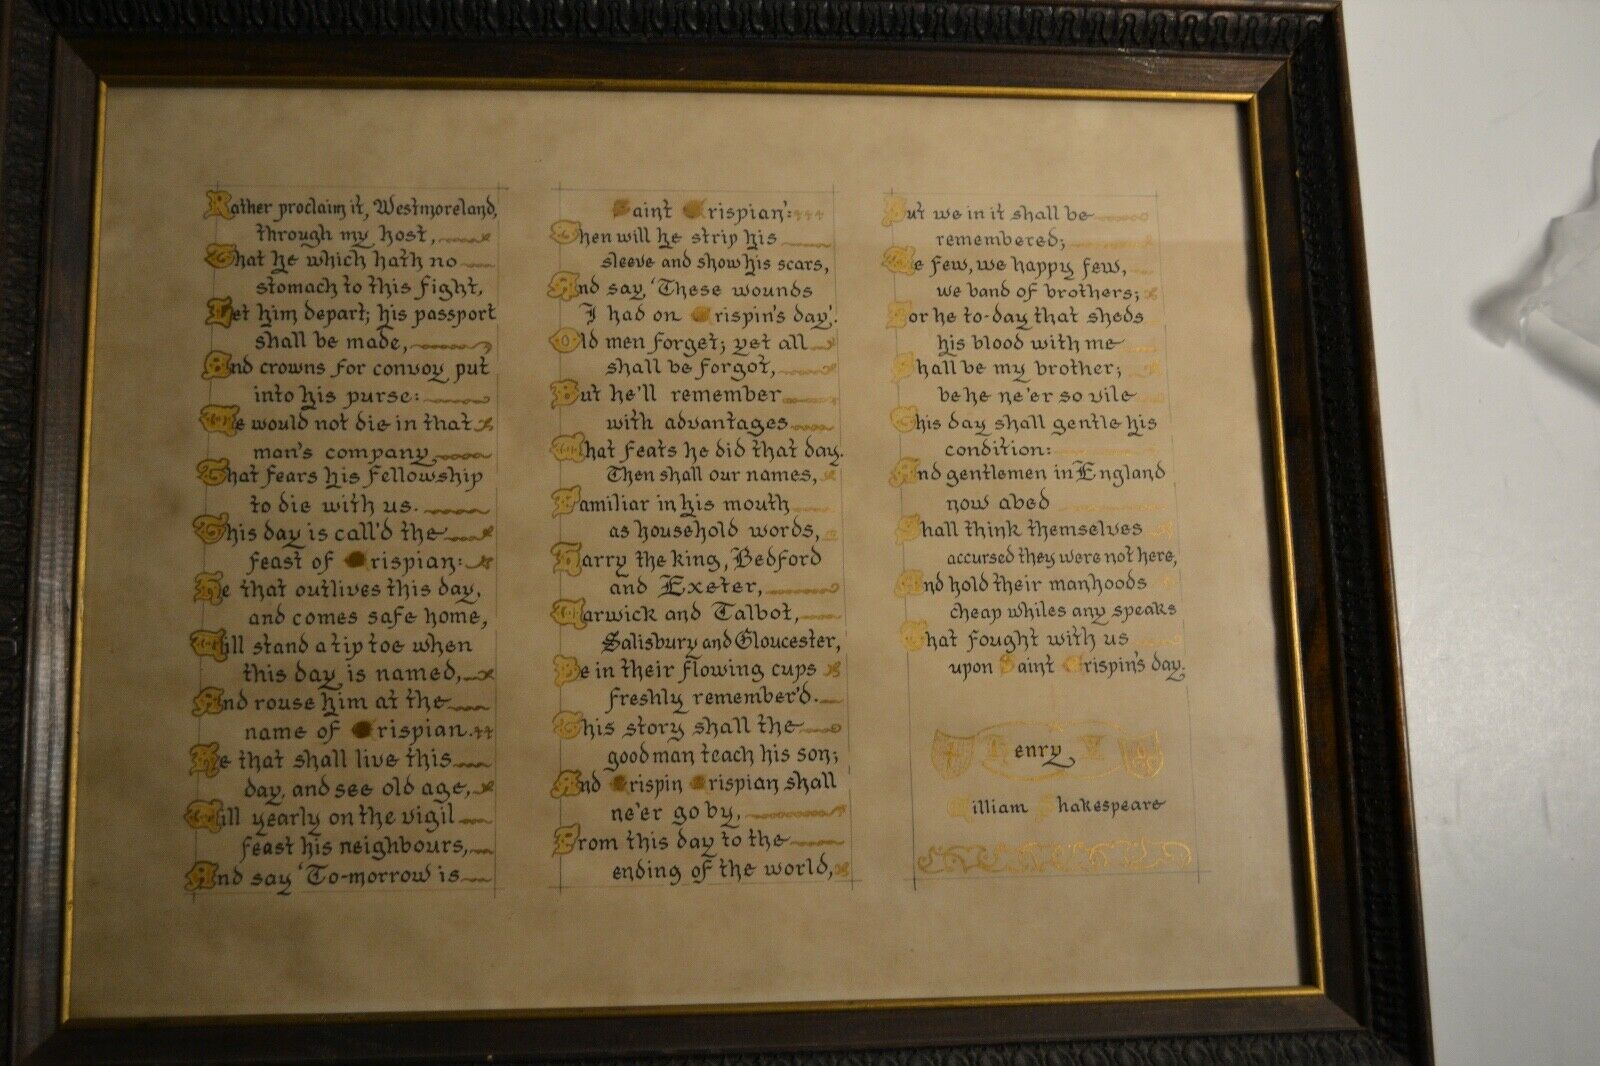 Rather proclaim it, Westmoreland,
through my host,
That he which hath no
stomach to this fight,
Let him depart; his passport
shall be made,
And crowns for convoy put
into his purse:
We would not die in that
man's company
That fears his fellowship
to die with us.
This day is call'd the
feast of Crispian:
He that outlives this day,
and comes safe home,
Will stand a tip toe when
this day is named,
And rouse him at the
name of Crispian.
He that shall live this
day, and see old age,
Will yearly on the vigil
feast his neighbours,
And say 'To-morrow is
Saint Crispian':
Then will he strip his
sleeve and show his scars,
And say, 'These wounds
I had on Crispin's day'.
Old men forget; yet all
shall be forgot,
But he'll remember
with advantages
What feats he did that day.
Then shall our names,
Familiar in his mouth
as household words,
Harry the king, Bedford
and Exeter,
Warwick and Talbot,
Salisbury and Gloucester,
Be in their flowing cups
freshly remember'd.
This story shall the
good man teach his son;
And Crispin Crispian shall
ne'er go by,
From this day to the
ending of the world,
But we in it shall be
remembered;
We few, we happy few,
we band of brothers;
For he to-day that sheds
his blood with me
Shall be my brother;
be he ne'er so vile
This day shall gentle his
condition:
And gentlemen in England
now abed
Shall think themselves
accursed they were not here,
And hold their manhoods
cheap whiles any speaks
That fought with us
upon Saint Crispin's day.
Henry V
William Shakespeare